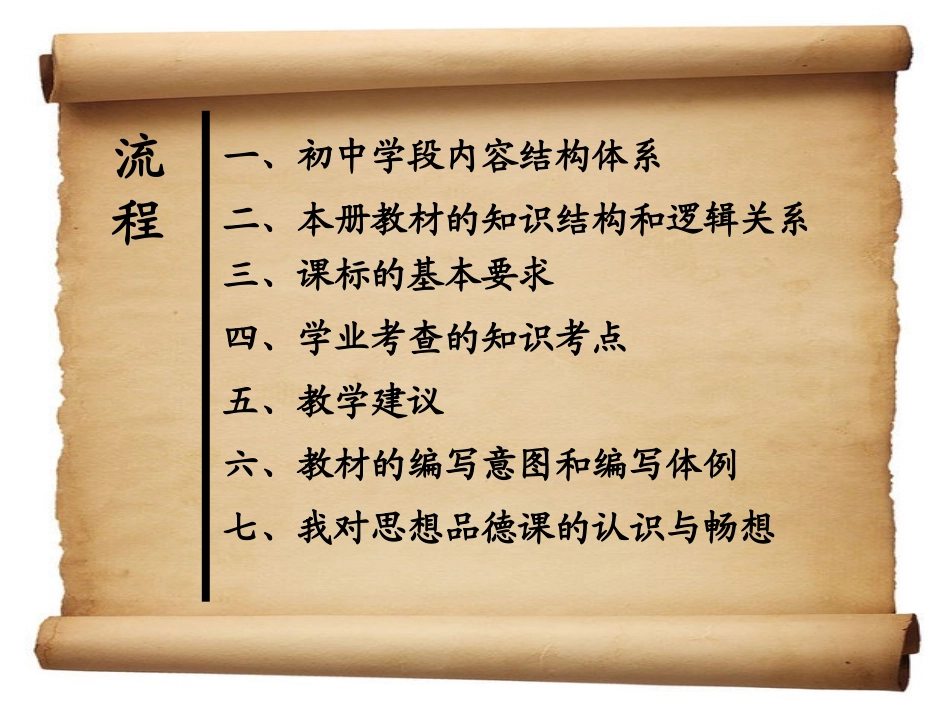 流程
一、初中学段内容结构体系
二、本册教材的知识结构和逻辑关系
三、课标的基本要求
四、学业考查的知识考点
五、教学建议
六、教材的编写意图和编写体例
七、我对思想品德课的认识与畅想